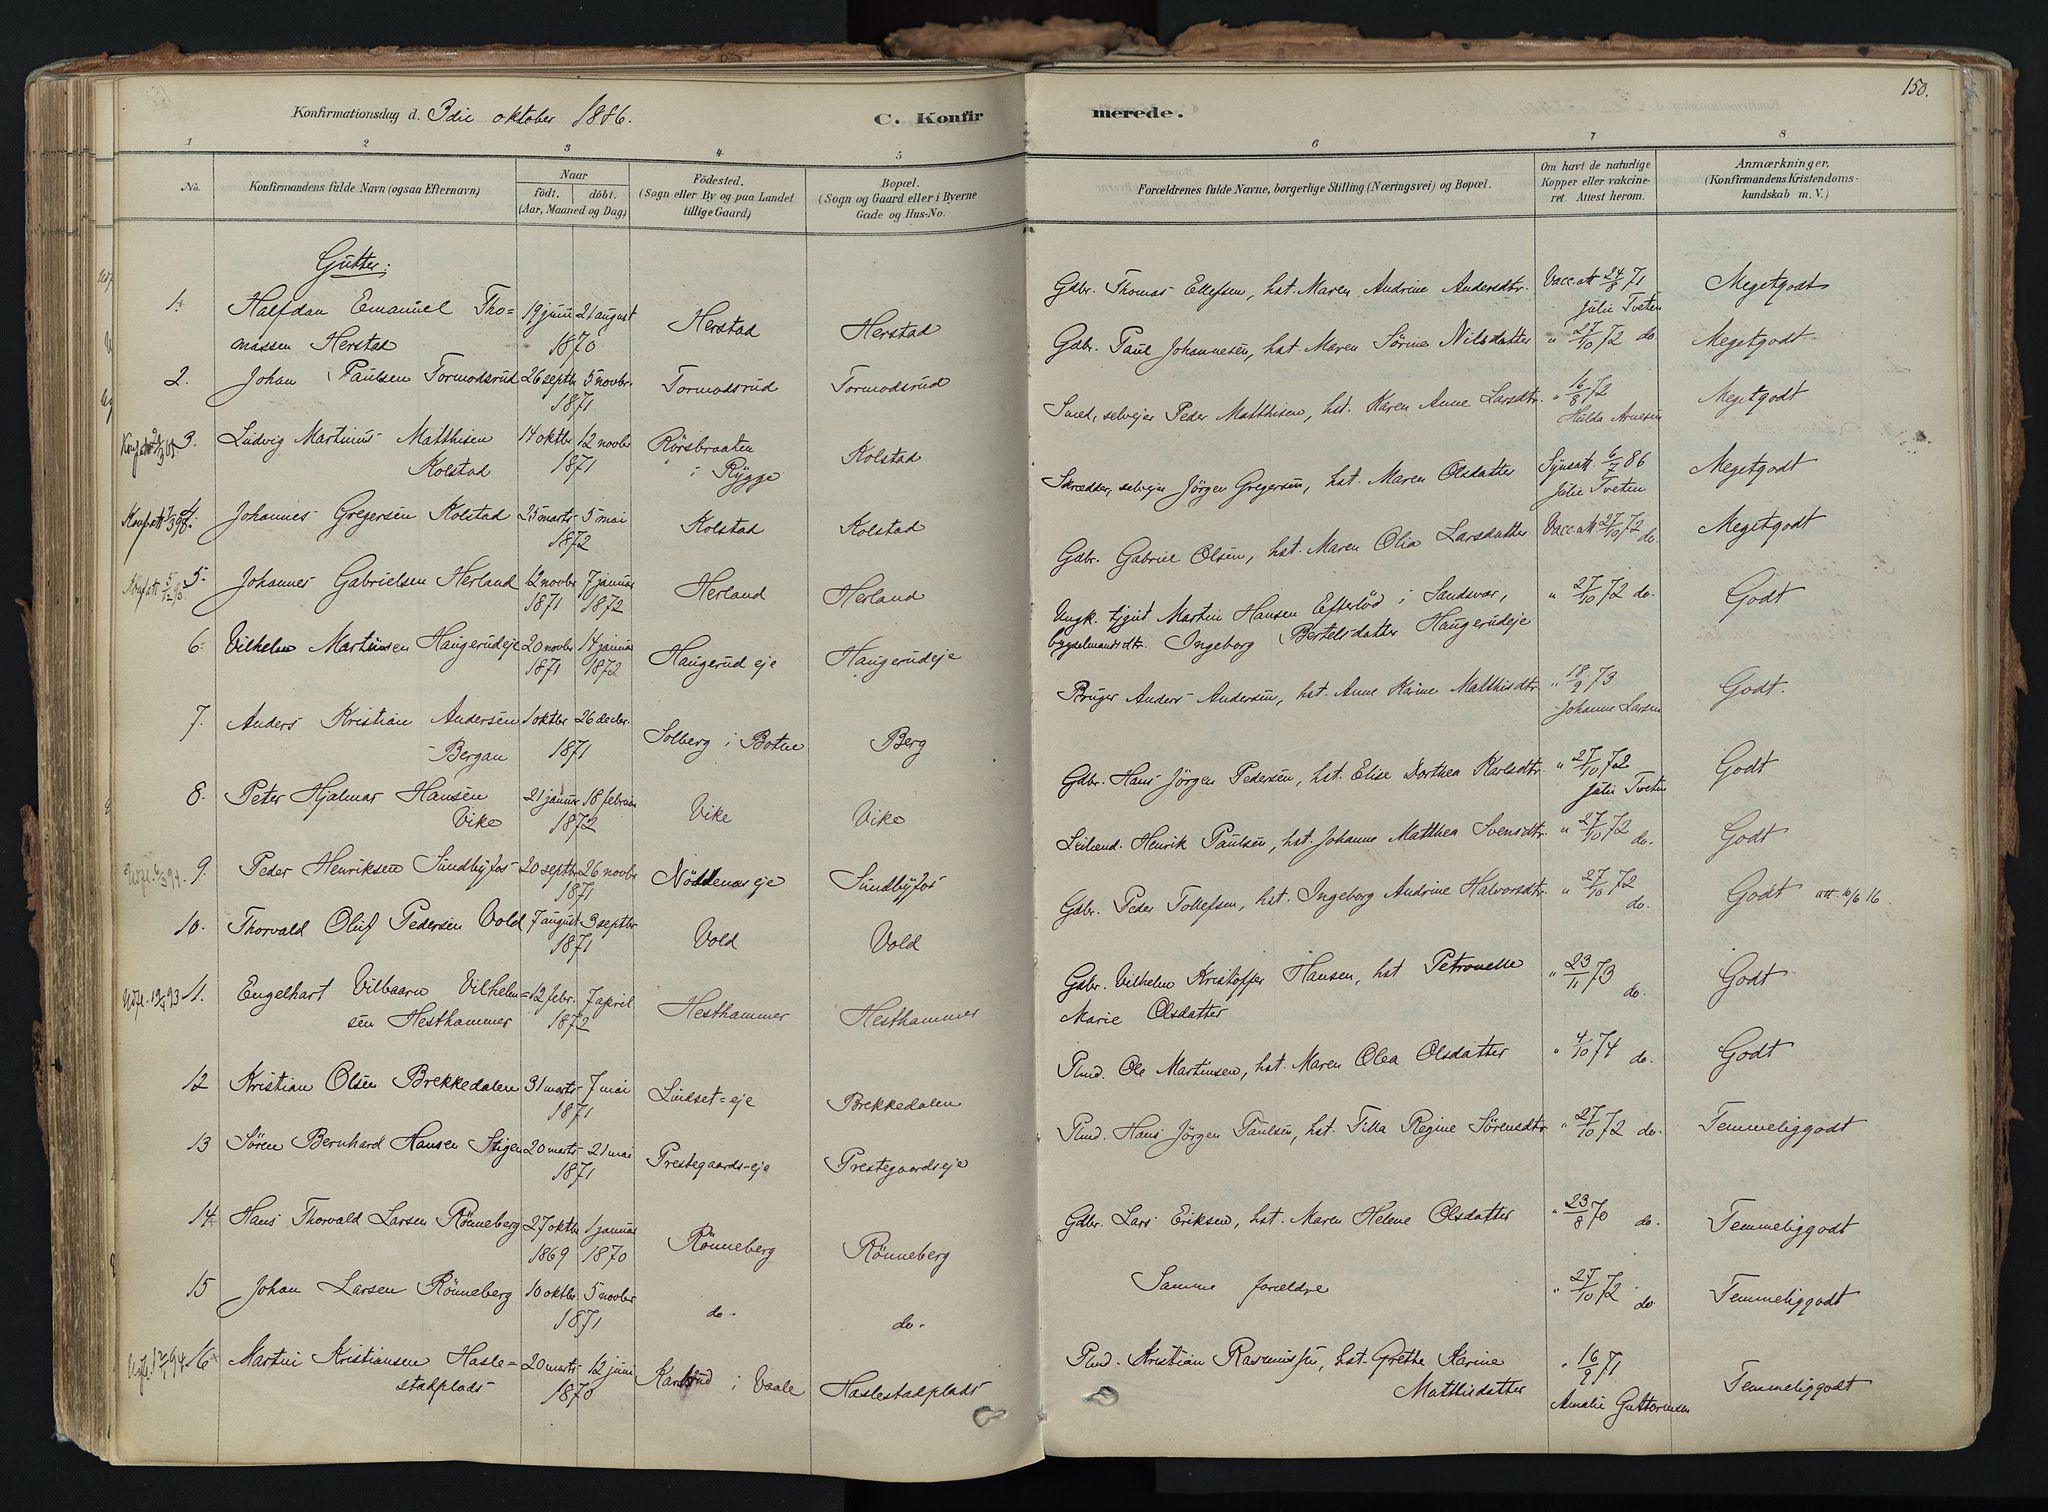 150.
Konfirmationsdag d. 3die oktober 1886.
C. Konfir
merede.
1 2 3 4 5 6 7 8
No.
Konfirmandens fulde Navn (ogsaa Efternavn)
Naar
født. døbt.
(Aar, Maaned og Dag)
Födested.
(Sogn eller By og paa Landet
tillige Gaard)
Bopæl.
(Sogn og Gaard eller i Byerne
Gade og Hus-No.
Forældrenes fulde Navne, borgerlige Stilling (Næringsvei) og Bopæl.
Om havt de naturlige
Kopper eller vakcine-
ret. Attest herom.
Anmærkninger.
(Konfirmandens Kristendoms-
kundskab m. V.)
Gutter:
1. Halfdan Emanuel Tho- 19 juni 21 august Herstad Herstad Gdbr. Thomas Ellefsen, hst. Maren Andrine Andersdtr. Vacc.att 24/8 71 Megetgodt
massen Herstad 1870 Julie Tveten
2. Johan Paulsen Tormodsrud 26 septbr 5 novbr. Tormodsrud Tormodsrud Gdbr. Paul Johannesen, hst. Maren Sørine Nilsdatter " 27/10 72 do. Megetgodt
1871
3. Ludvig Martinus Matthisen 14 oktbr 12 novbr Rörsbraaten Kolstad Smed, selveier Peder Matthisen, hst. Karen Anne Larsdtr. " 16/8 72 Megetgodt
Kolstad 1871 i Rygge Hulda Arnesen
4. Johannes Gregersen Kolstad 25 marts 5 mai Kolstad Kolstad Skrædder, selveier Jörgen Gregersen, hst. Maren Olsdatter Synsatt. 6/7 86 Megetgodt
1872 Julie Tveten
5. Johannes Gabrielsen Herland 12 novbr 7 januar Herland Herland Gdbr. Gabriel Olsen, hst. Maren Olia Larsdatter Vacc.att 27/10 72 do. Megetgodt
1871 1872
6. Vilhelm Martinsen Haugerudeje 20 novbr 14 januar Haugerud eje Haugerudeje Ungk. tjgnd Martin Hansen Efterlöd i Sandsvær, " 27/10 72 do. Godt
1871 1872 bygselmandsdtr. Ingeborg Bertelsdatter Haugerudeje
7. Anders Kristian Andersen 1 oktbr 26 decbr. Solberg i Botne Berg Bruger Anders Andersen, hst. Anne Karine Matthisdtr " 18/9 73 Godt.
Bergan 1871 Johanne Larsen
8. Peter Hjalmar Hansen 21 januar 18 februar Vike Vike Gdbr. Hans Jörgen Pedersen, hst. Elise Dorthea Karlsdtr. " 27/10 72 Godt
Vike 1872 Julie Tveten
9. Peder Henriksen Sundbyfos 20 septbr 26 novbr Nöddenæs eje Sundbyfos Leilænd. Henrik Paulsen, hst. Johanne Matthea Svensdtr. " 27/10 72 do. Godt
1871
10. Thorvald Oluf Pedersen Vold 7 august 3 septbr Vold Vold Gdbr. Peder Tollefsen, hst. Ingeborg Andrine Halvorsdtr. " 27/10 72 do. Godt att. 10/6 16.
1871
11. Engelhart Vilbaarn Vilhelm= 12 febr. 7 april Hesthammer Hesthammer Gdbr. Vilhelm Kristoffer Hansen, hst Petronelle " 23/11 73 do. Godt
sen Hesthammer 1872 Marie Olsdatter
12 Kristian Olsen Brekkedalen 31 marts 7 mai Lindset=eje Brekkedalen Plmd. Ole Martinsen, hst. Maren Olea Olsdatter " 4/10 74 do. Godt
1871
13 Sören Bernhard Hansen Stigen 20 marts 21 mai Prestegaards-eje Prestegaardseje Plmd. Hans Jörgen Paulsen, hst. Tilla Regine Sörensdtr. " 27/10 72 do. Temmeliggodt
1871
14 Hans Thorvald Larsen Rönneberg 27 oktbr 1 januar Rönneberg Rönneberg Gdbr. Lars Eriksen, hst. Maren Helene Olsdatter " 23/8 70 do. Temmeliggodt
1869 1870
15 Johan Larsen Rönneberg 10 oktbr. 5 novbr do. do. Samme forældre " 27/10 72 do Temmeliggodt
1871
16 Martin Kristiansen Hasle= 20 marts 12 juni i Vaale Haslestadplads Plmd. Kristian Rasmussen, hst. Grethe Karine " 16/9 71 Temmeliggodt
stadplads 1870 Matthisdatter Amalie Guttormsen